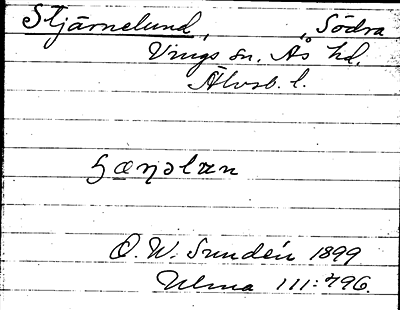 Stjärnelund, Södra
Vings sn. Ås hd.
Älvsb. l.
O. W. Sundén 1899
Ulma 111:796.